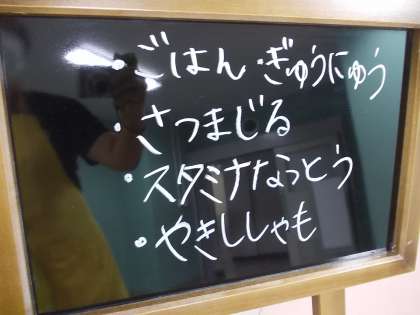 ・ごはん・ぎゅうにゅう
・さつまじる
・スタミナなっとう
・やきししゃも